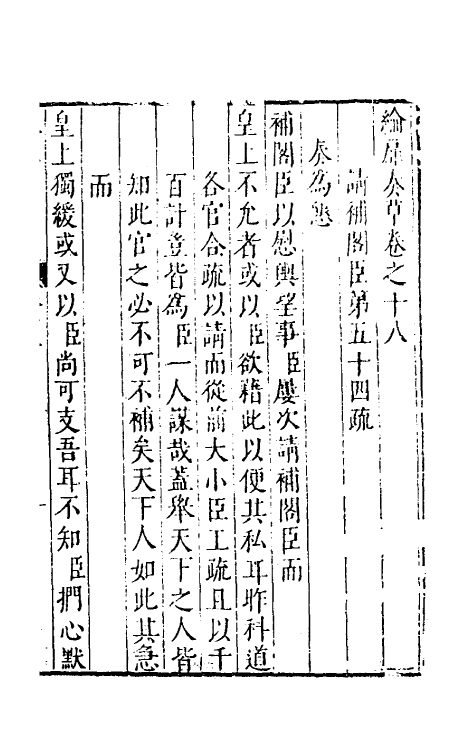 綸扉奏草卷之十八
請補閣臣第五十四疏
奏爲懇
補閣臣以慰輿望事臣屢次請補閣臣而
皇上不允者或以臣欲藉此以便其私耳昨科道
各官合疏以請而從前大小臣工疏且以千
百計豈皆爲臣一人謀哉蓋舉天下之人皆
知此官之必不可不補矣天下人如此其急
而
皇上獨緩或又以臣尚可支吾耳不知臣捫心默